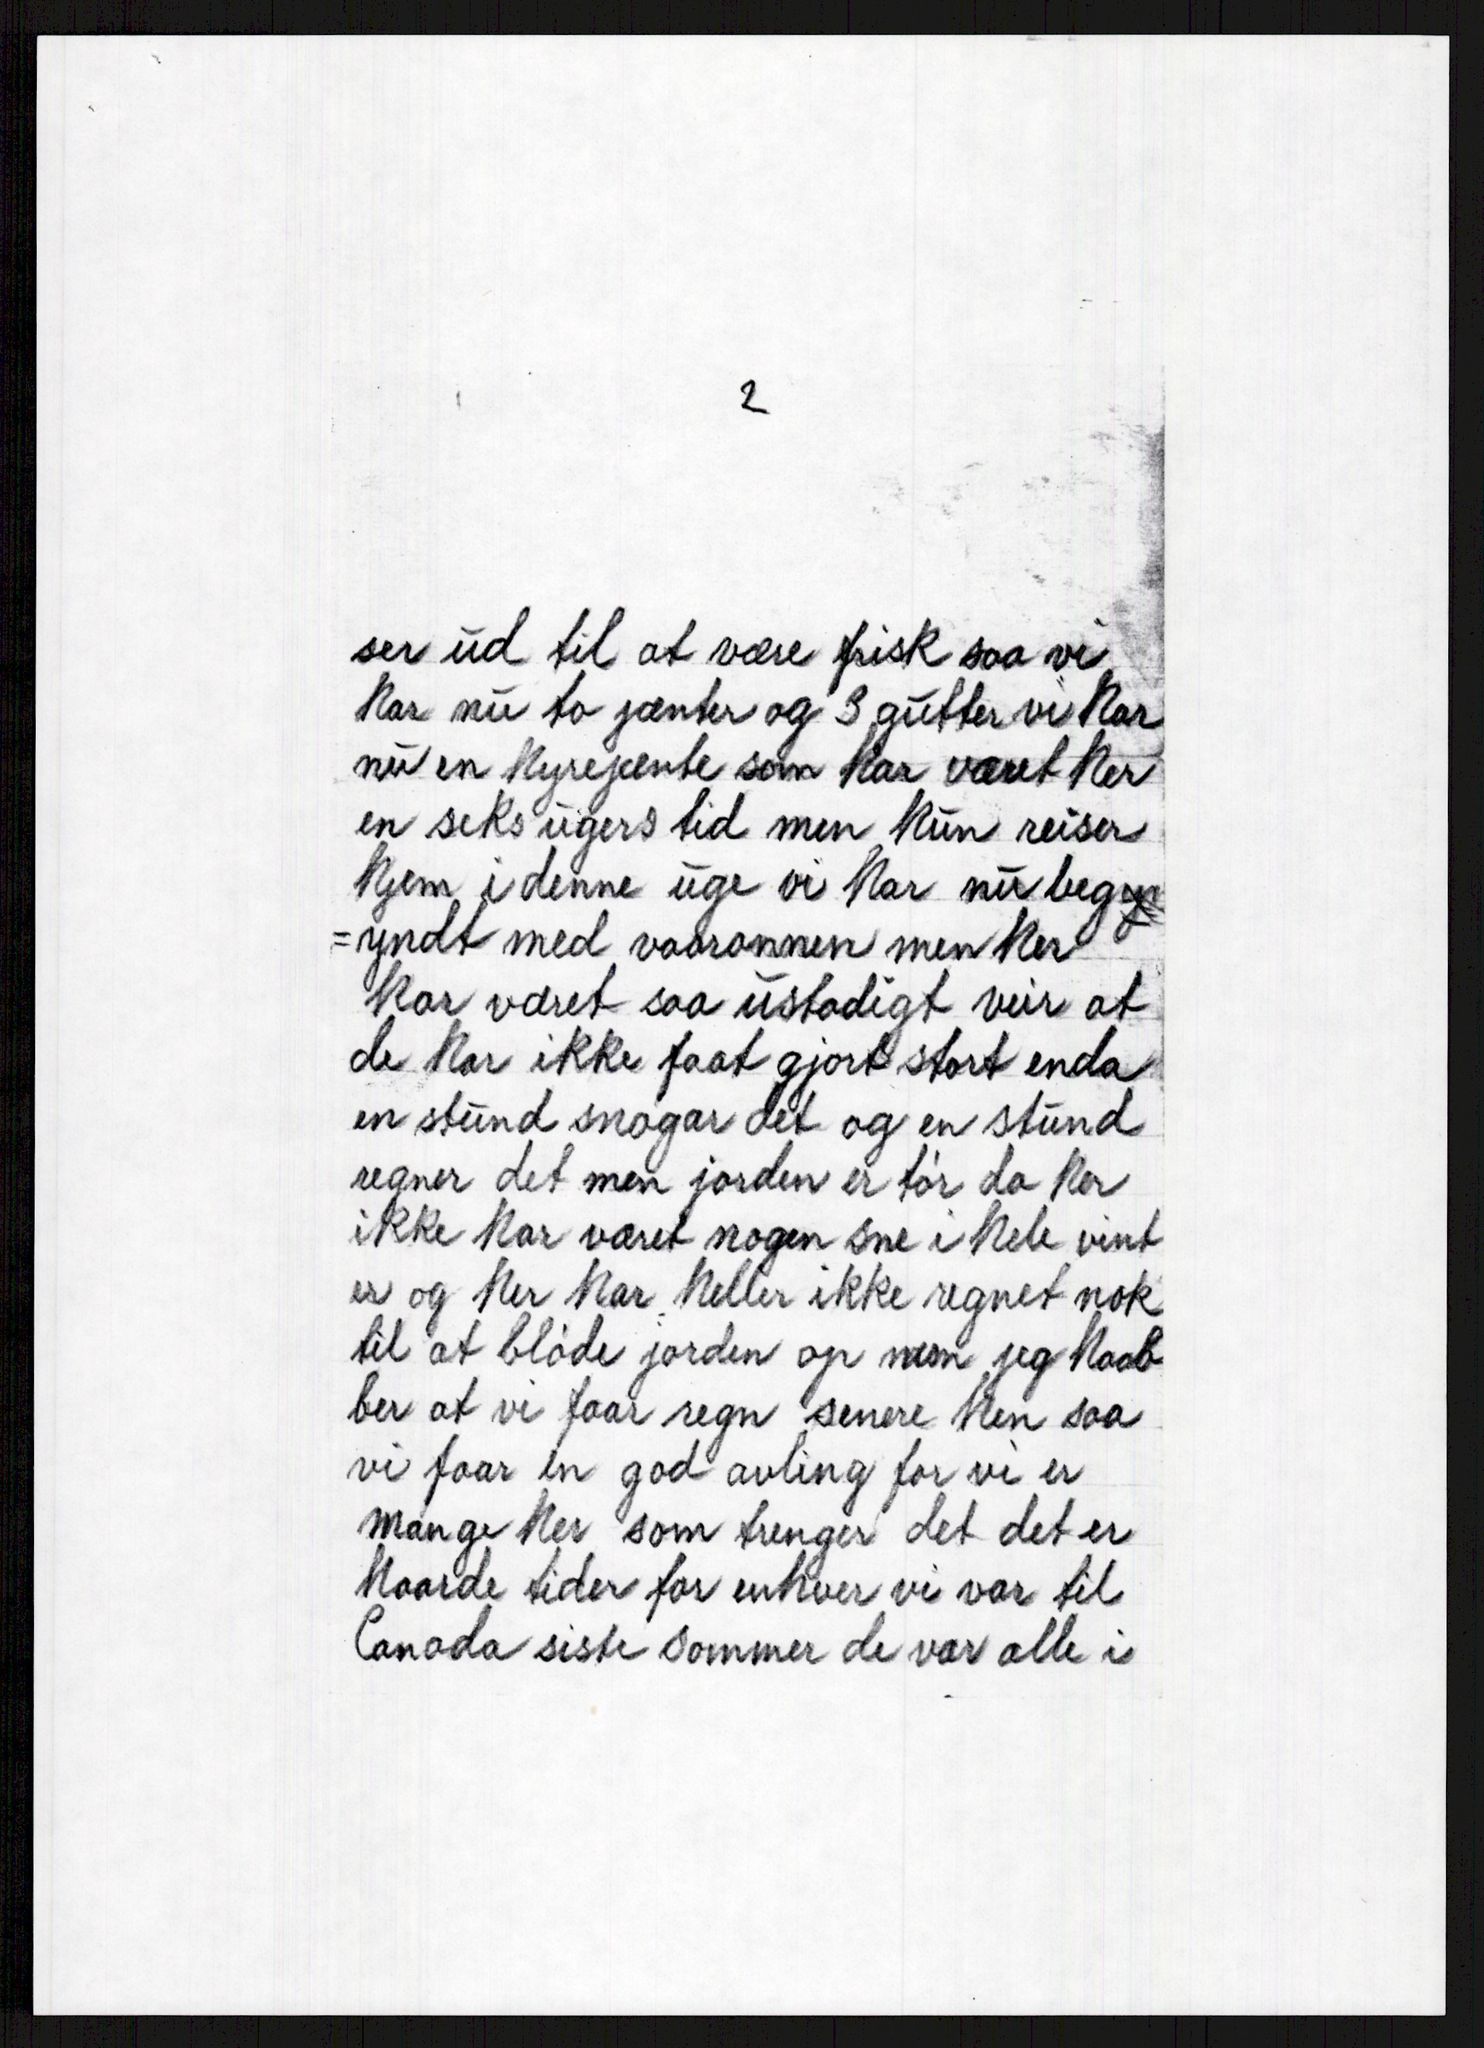 2
ser ud til at være frisk saa vi
har nu to jenter og 3 gutter vi har
nu en hyrejente som har været her
en seks ugers tid men hun reiser
hjem i denne uge vi har nu beg
=yndt med vaaronnen men her
har været saa ustadigt veir at
de har ikke faat gjort stort enda
en stund snøgar det og en stund
regner det men jorden er tør da her
ikke har været nogen sne i hele vint
er og her har heller ikke regnet nok
til at bløde jorden op men jeg haab
ber at vi faar regn senere hen saa
vi faar en god avling for vi er
mange her som trenger det det er
haarde tider for enhver vi var til
Canada siste sommer de var alle i